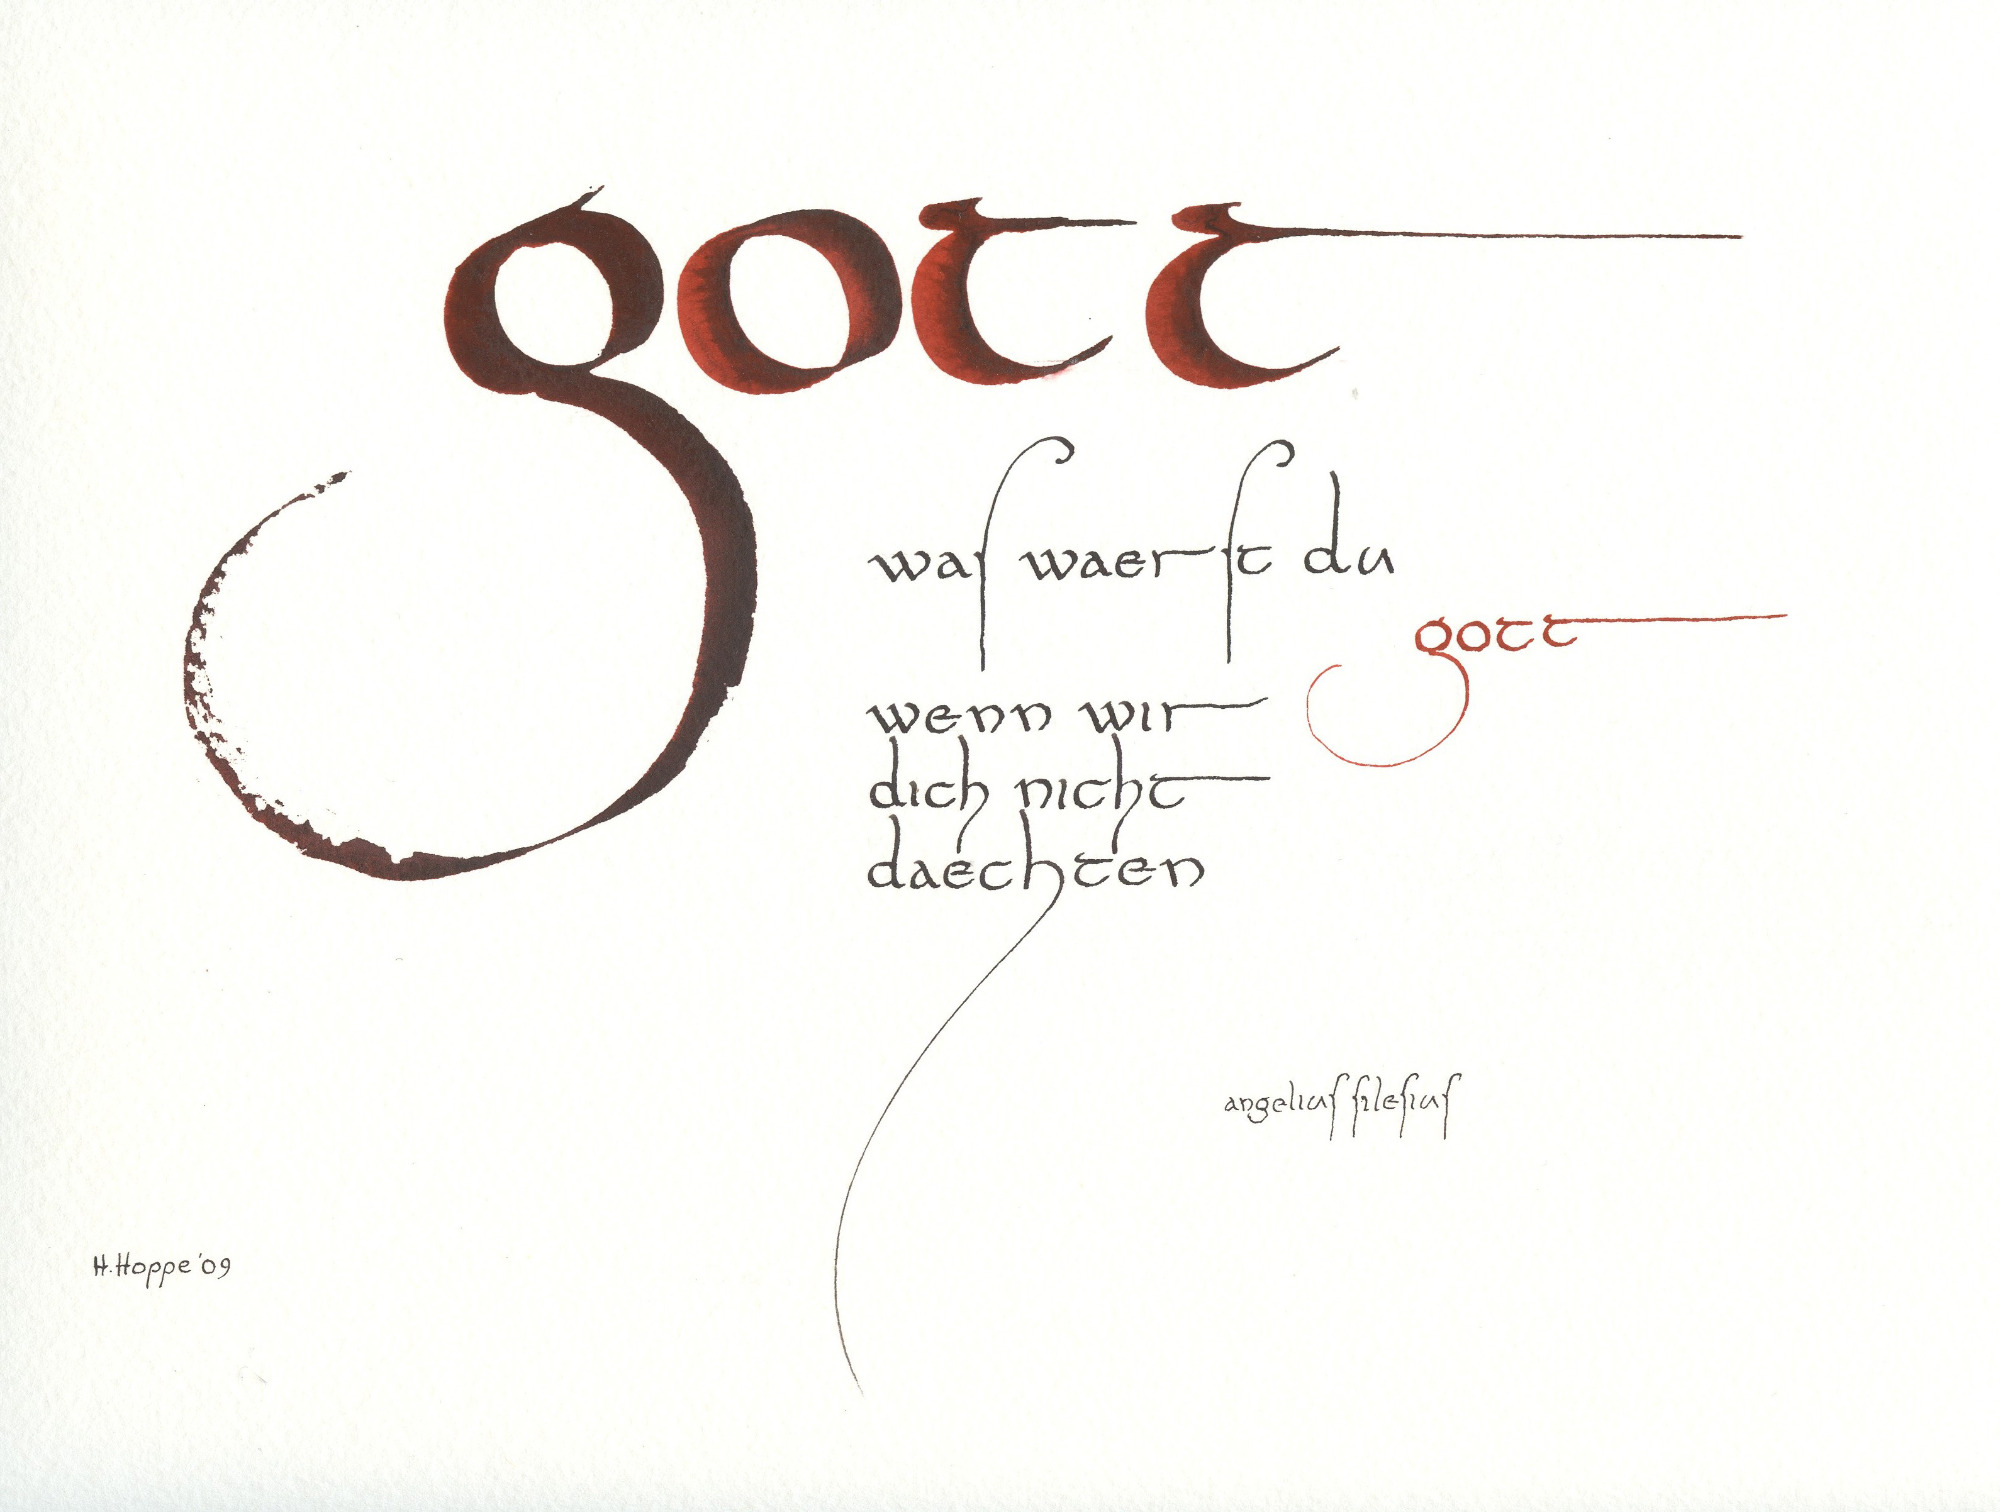 gott
waſ waerſt du
gott
wenn wir
dich nicht
daechten
angeliuſ ſileſiuſ
H. Hoppe '09